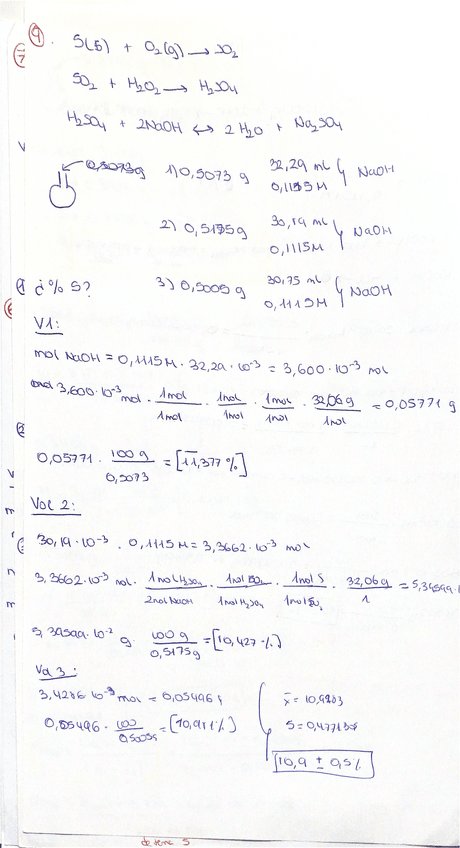 9. S(s) + O₂(g) → SO₂
SO₂ + H₂O₂ → H₂SO₄
H₂SO₄ + 2NaOH ↔ 2H₂O + Na₂SO₄
0,5073g 1) 0,5073 g 32,29 mL 0,1115M } NaOH
2) 0,5175g 30,19 mL 0,1115M } NaOH
¿% S? 3) 0,5005g 30,75 mL 0,1115M } NaOH
V1:
mol NaOH = 0,1115M · 32,29·10⁻³ = 3,600·10⁻³ mol
3,600·10⁻³ mol · 1mol/1mol · 1mol/1mol · 1mol/1mol · 32,06g/1mol = 0,05771 g
0,05771 · 100 g/0,5073 = [11,377%]
Vol 2:
30,19·10⁻³ · 0,1115M = 3,3662·10⁻³ mol
3,3662·10⁻³ mol · 1mol H₂SO₄/2mol NaOH · 1mol SO₂/1mol H₂SO₄ · 1mol S/1mol SO₂ · 32,06g/1
10⁻² g · 100 g/0,5175g = [10,427%]
Vol 3:
3,4286·10⁻³ mol = 0,05496
0,05496 · 100 = [10,981%]
x̄ =
S =
10,9 ± 0,5%
de tene S